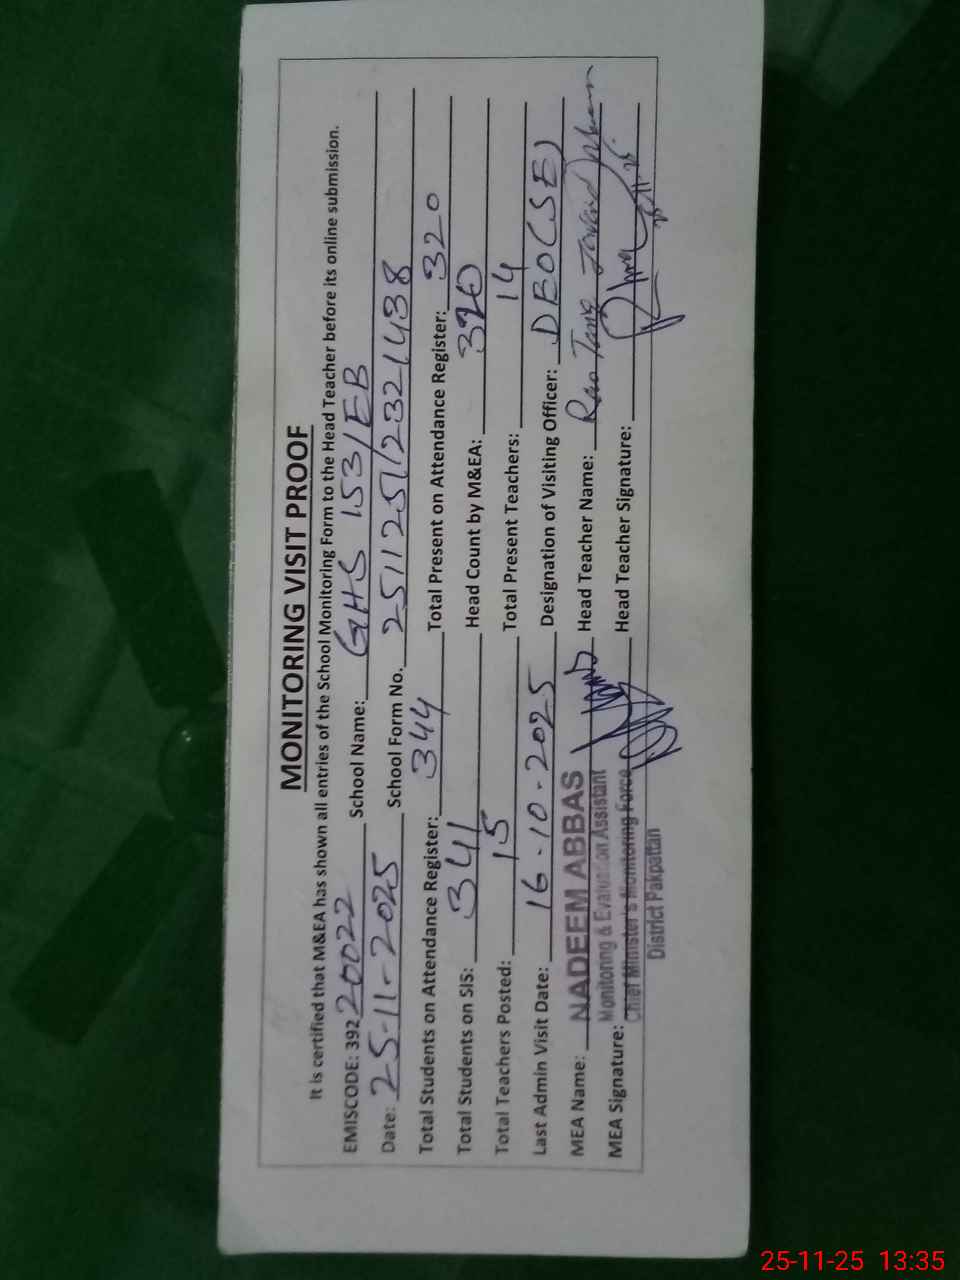 MONITORING VISIT PROOF
It is certified that M&EA has shown all entries of the School Monitoring Form to the Head Teacher before its online submission.
EMISCODE: 39220022 School Name: GHS 153/EB
Date: 25-11-2025 School Form No. 2511251/2321438
Total Students on Attendance Register: 344 Total Present on Attendance Register: 320
Total Students on SIS: 341 Head Count by M&EA: 320
Total Teachers Posted: 15 Total Present Teachers: 14
Last Admin Visit Date: 16-10-2025 Designation of Visiting Officer: DEO(SE)
MEA Name: NADEEM ABBAS Head Teacher Name: Rao
Monitoring & Evaluation Assistant
MEA Signature: Chief Minister's Monitoring Force Head Teacher Signature:
District Pakpattan
25-11-25 13:35